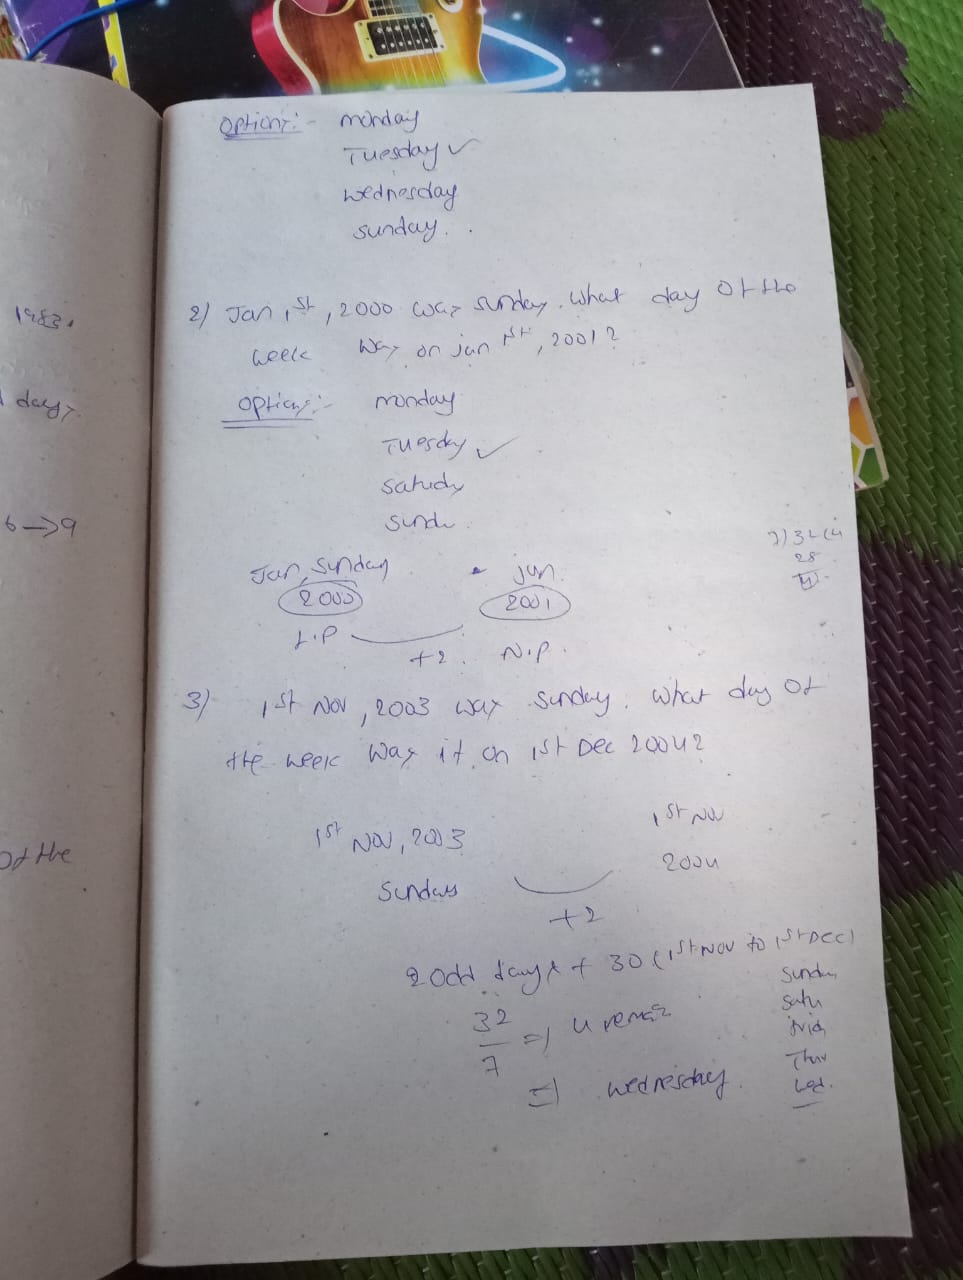 1983.
d days.
6 → 9
Of the
Options:- monday
Tuesday ✓
wednesday
sunday.
2) Jan 1st, 2000 was sunday. What day of the
week was on jan 1st, 2001?
Options:- monday
Tuesday ✓
saturdy
sund
Jan, Sunday jan.
2000 2001
L.P +2. N.P.
7) 32 (4
28
4
3) 1st Nov, 2003 was Sunday. What day of
the week was it on 1st Dec 2004?
1st Nov, 2003 1st Nov
Sundays 2004
+2
2 odd days + 30 (1st Nov to 1st Dec)
32
7 => 4 remai
=> wednesday.
Sunday
Satu
Frid
Thur
Wed.